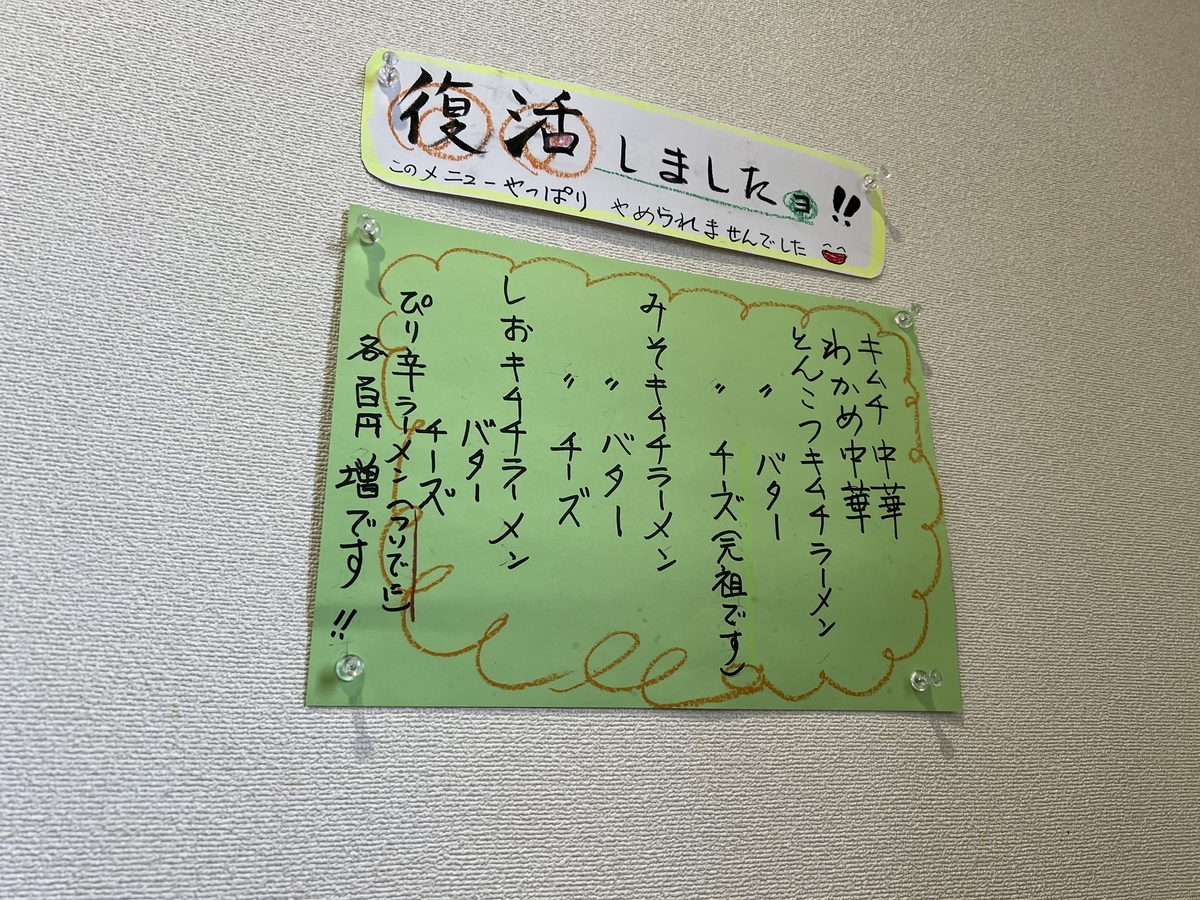 復活しましたヨ!!
このメニューやっぱり やめられませんでした
キムチ中華
わかめ中華
とんこつキムチラーメン
〃 バター
〃 チーズ(元祖です)
みそキムチラーメン
〃 バター
〃 チーズ
しおキムチラーメン
バター
チーズ
ぴり辛ラーメン(ついでに)
各百円増です!!